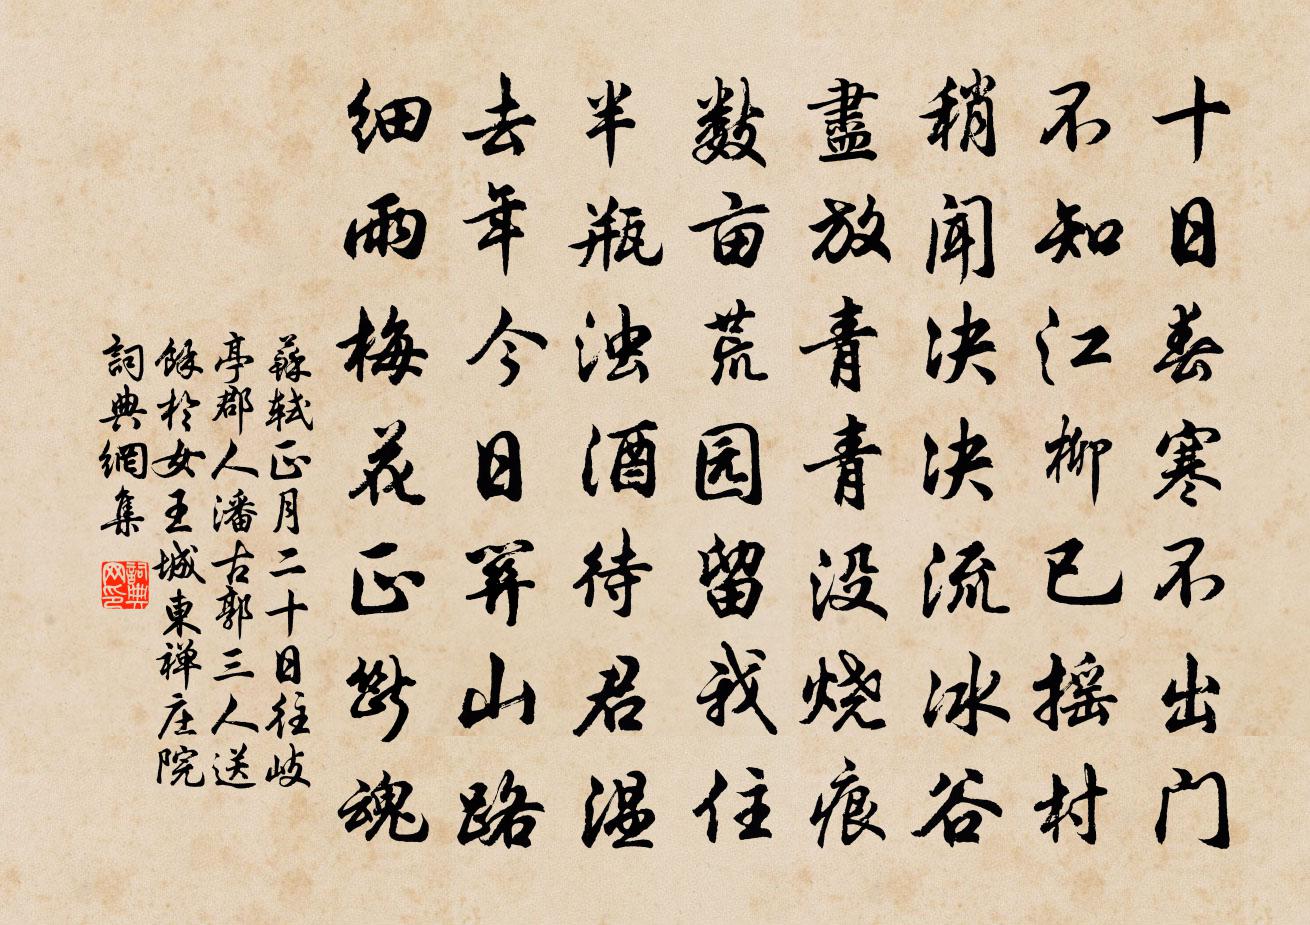 十日春寒不出门
不知江柳已摇村
稍闻决决流冰谷
盡放青青没烧痕
数亩荒园留我住
半瓶浊酒待君温
去年今日関山路
细雨梅花正断魂
蘇轼正月二十日往岐
亭郡人潘古郭三人送
餘於女王城東禅庄院
詞典網集
詞典网印